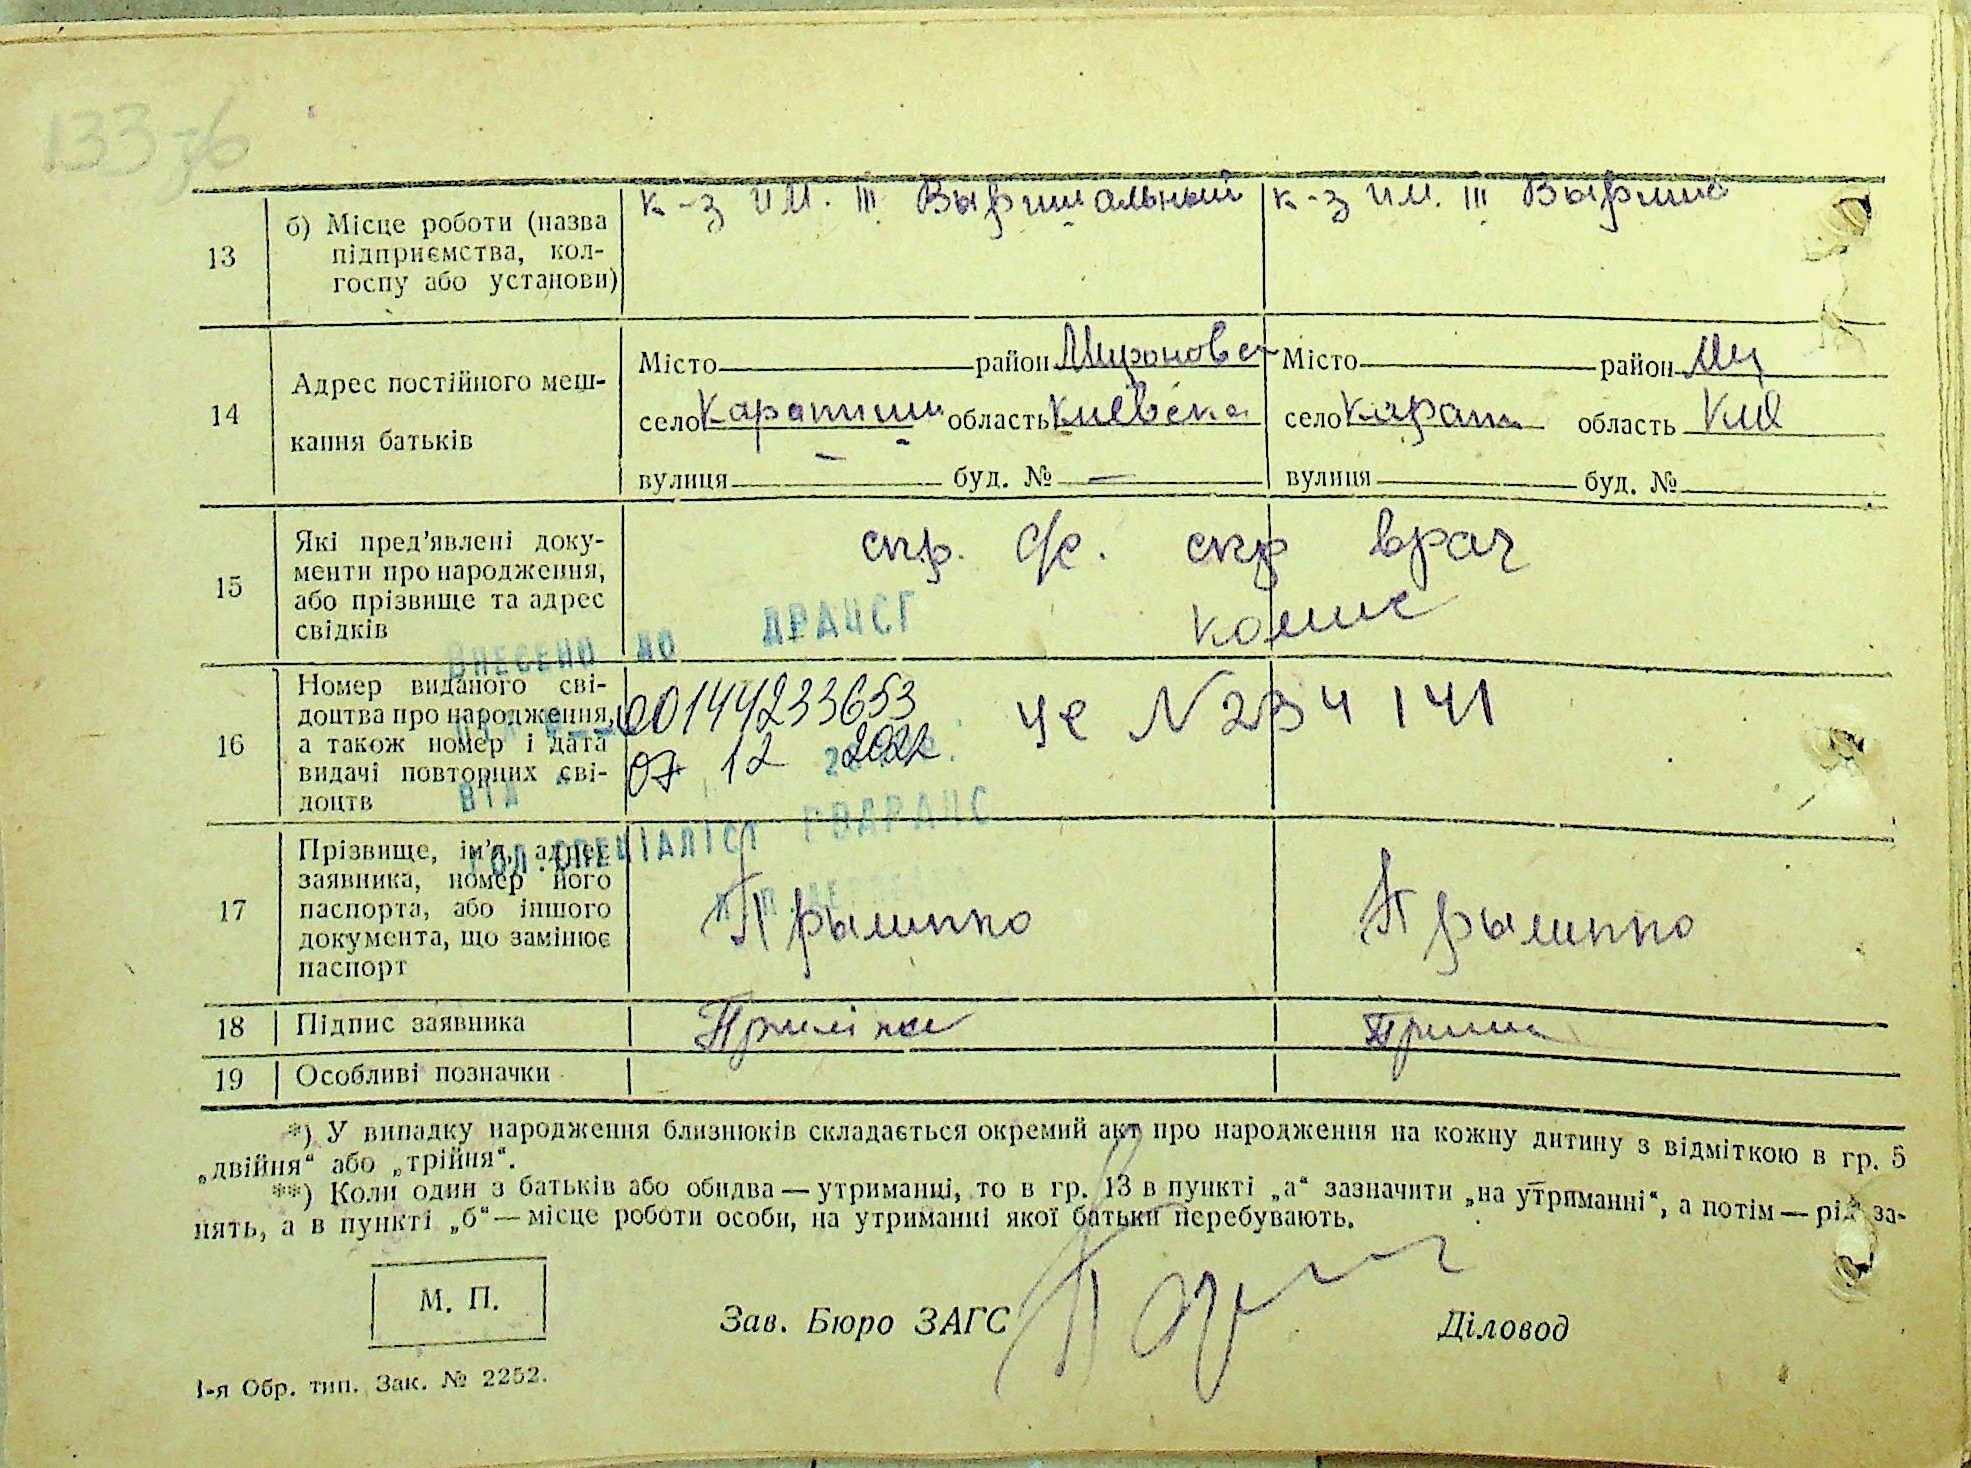 133 зб
13
б) Місце роботи (назва
підприємства, кол-
госпу або установи)
к-з им. III Выришальный
к-з им. III
14
Адрес постійного меш-
кання батьків
Місто район Мироновск
село Карапиши область Киевска
вулиця — буд. № —
Місто район Ми
село Карапи область Кие
вулиця буд. №
15
Які пред'явлені доку-
менти про народження,
або прізвище та адрес
свідків
спр. с/с. спр врач
комис
ВНЕСЕНО ДО ДРАЦСГ
16
Номер виданого сві-
доцтва про народження,
а також номер і дата
видачі повторних сві-
доцтв
00144233653
07 12 2022
ВІД
ГОЛ.СПЕЦІАЛІСТ РВДРАЦС
ЧС N 234141
17
Прізвище, ім'я, адрес
заявника, номер його
паспорта, або іншого
документа, що замінює
паспорт
18
Підпис заявника
19
Особливі позначки
*) У випадку народження близнюків складається окремий акт про народження на кожну дитину з відміткою в гр. 5
„двійня“ або „трійня“.
**) Коли один з батьків або обидва — утриманці, то в гр. 13 в пункті „а“ зазначити „на утриманні“, а потім — рід за-
нять, а в пункті „б“ — місце роботи особи, на утриманні якої батьки перебувають.
М. П.
Зав. Бюро ЗАГС
Діловод
1-я Обр. тип. Зак. № 2252.